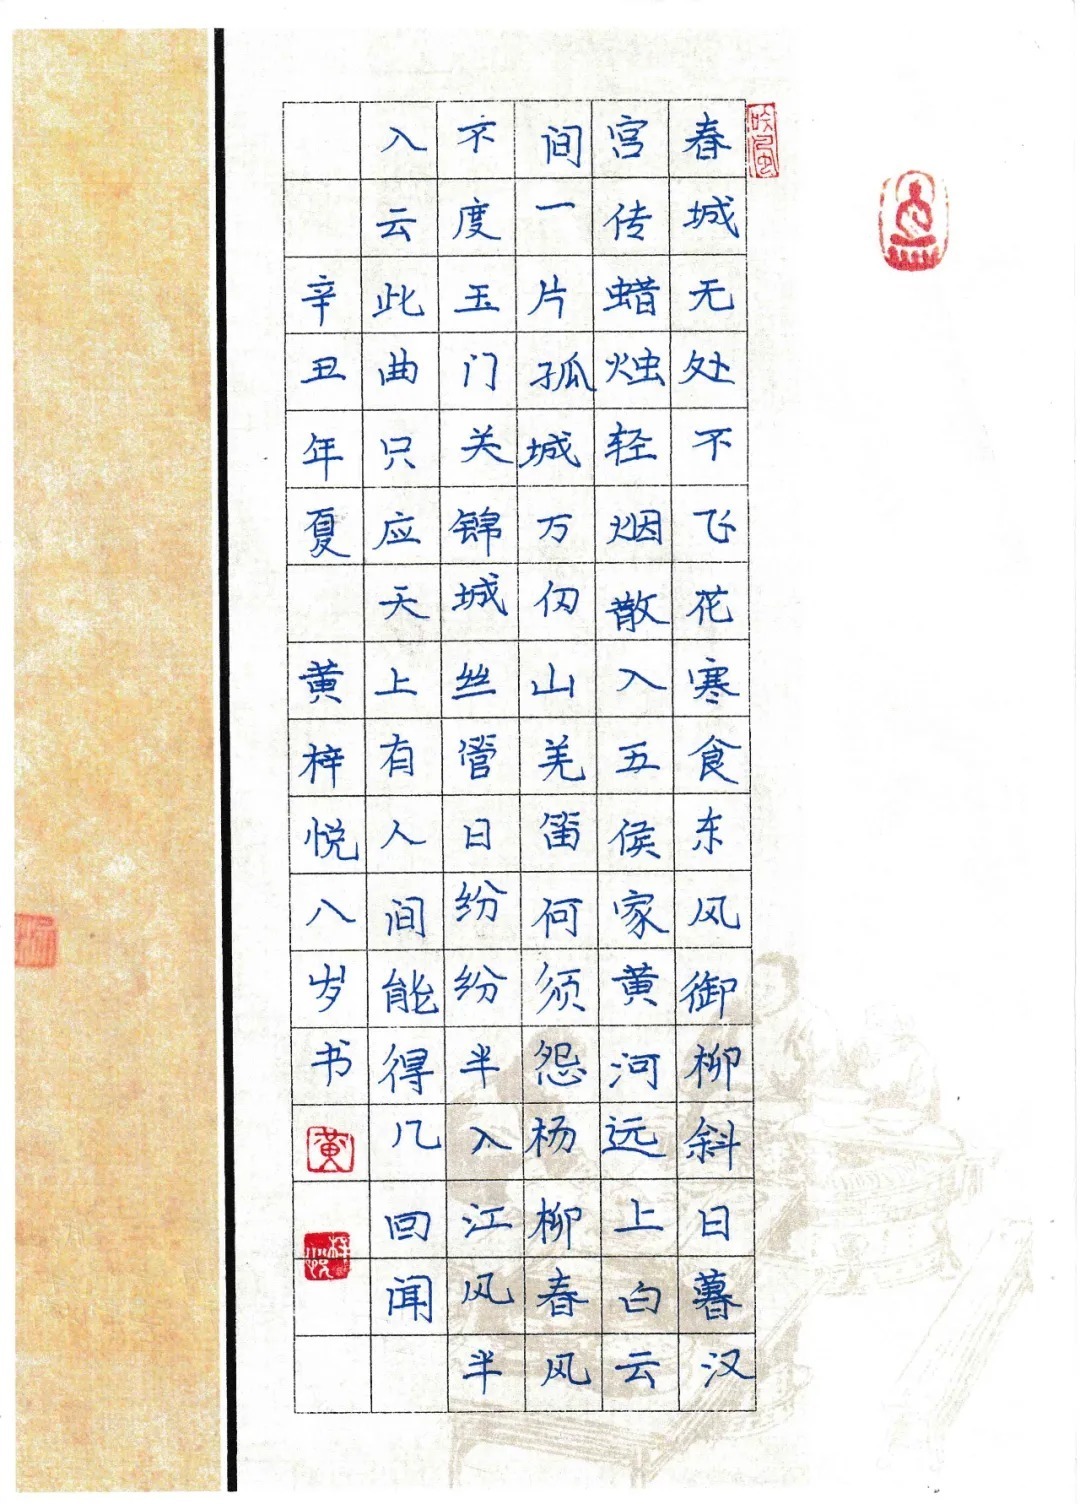 春城无处不飞花寒食东风御柳斜日暮汉
宫传蜡烛轻烟散入五侯家黄河远上白云
间一片孤城万仞山羌笛何须怨杨柳春风
不度玉门关锦城丝管日纷纷半入江风半
入云此曲只应天上有人间能得几回闻
辛丑年夏 黄梓悦八岁书
黄
梓悦